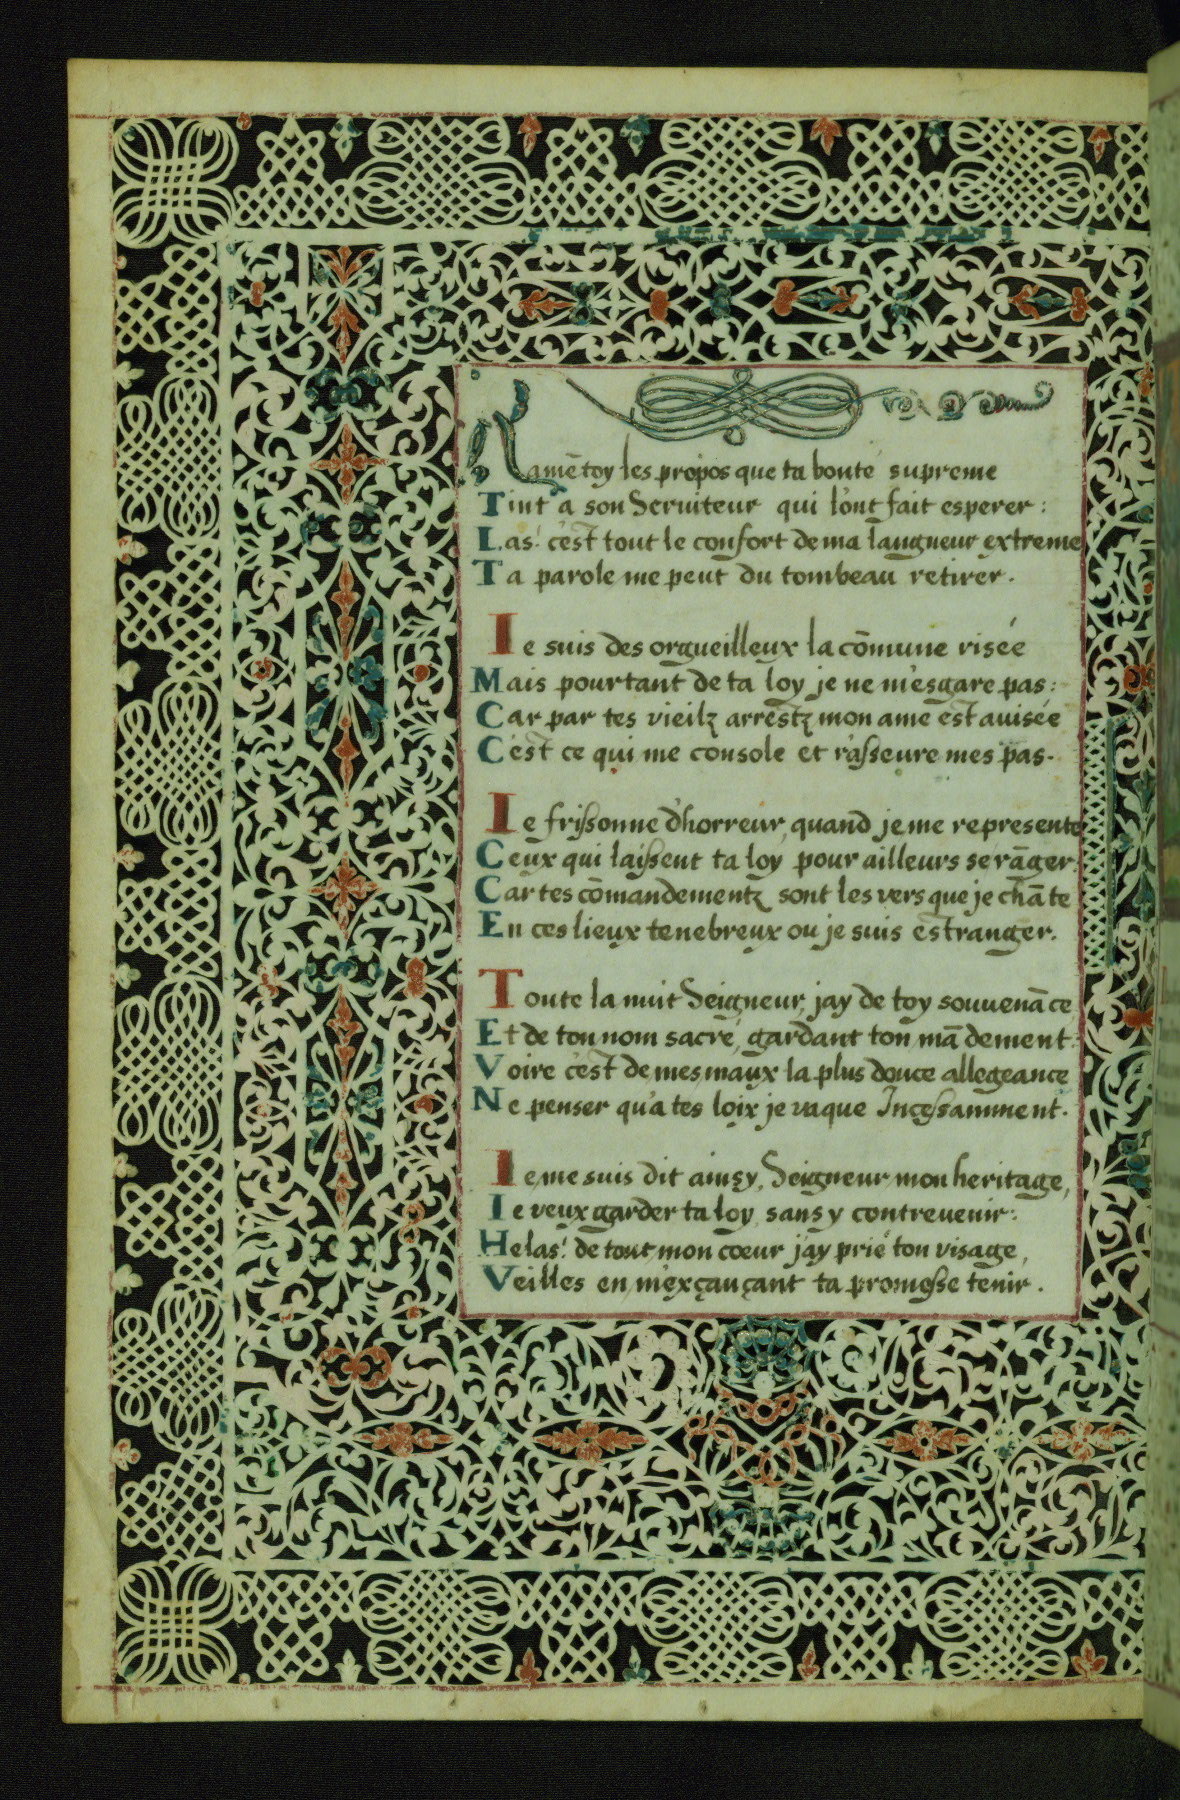 Ramētoy les propos que ta bonté supreme
Tint a son Seruiteur qui l'ont fait esperer :
Las! c'est tout le confort de ma langueur extreme
Ta parole me peut du tombeau retirer.
Ie suis des orgueilleux la cōmune risée
Mais pourtant de ta loy je ne m'esgare pas :
Car par tes vieilz arrestz mon ame est auisée
C'est ce qui me console et r'asseure mes pas.
Ie frissonne d'horreur, quand je me represente
Ceux qui laissent ta loy pour ailleurs se rāger :
Car tes cōmandementz sont les vers que je chāte
En ces lieux tenebreux ou je suis estranger.
Toute la nuit Seigneur, j'ay de toy souuenāce
Et de ton nom sacré, gardant ton mādement :
Voire c'est de mes maux la plus douce allegeance
Ne penser qu'a tes loix je vaque Incessamment.
Ie me suis dit ainsy, Seigneur mon heritage,
Ie veux garder ta loy sans y contreuenir :
Helas! de tout mon cœur j'ay prié ton visage,
Veilles en m'exçauçant ta promesse tenir.